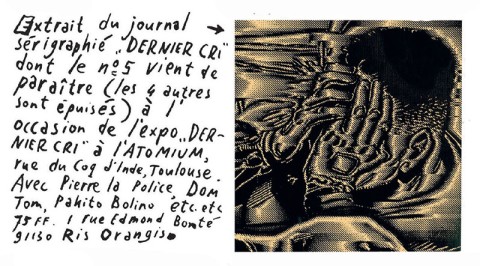 Extrait du journal →
sérigraphié „DERNIER CRI"
dont le nº5 vient de
paraître (les 4 autres
sont épuisés) à l'
occasion de l'expo „DER-
NIER CRI" à l'ATOMIUM,
rue du Coq d'Inde, Toulouse.
Avec Pierre la Police, DOM
Tom, Pakito Bolino etc.etc
75 FF. 1 rue Edmond Bonté
91130 Ris Orangis.